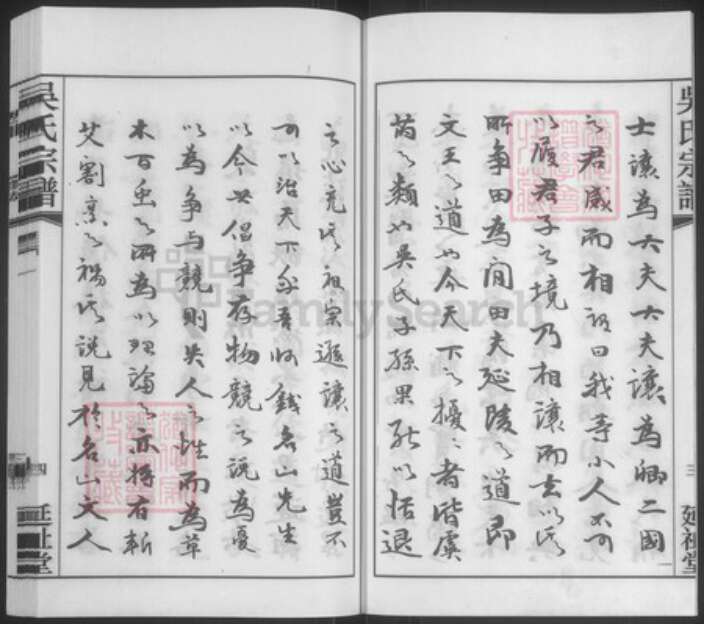 吳氏宗譜
士讓為大夫大夫讓為卿二國
之君感而相謂曰我等小人不可
以履君子之境乃相讓而去以其
所爭田為間田夫延陵之道即
文王之道也今天下之擾擾者皆虞
芮之類也吳氏子孫果能以恬退
三
延祉堂
吳氏宗譜
之心充其祖宗遜讓之道豈不
可以治天下乎吾師錢名山先生
以今世倡爭存物競之說為憂
以為爭與競則失人之性而為草
木百虫之所為以理論之亦將有斬
艾割烹之禍其說見於名山文人
四
延祉堂
FamilySearch